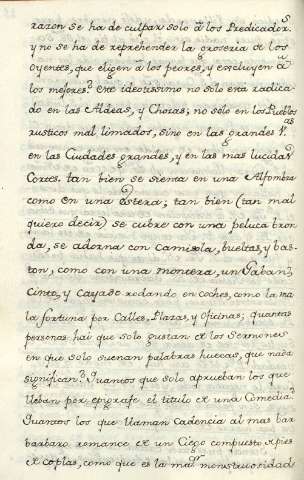 razon se ha de culpar solo â los Predicador.s
y no se ha de reprehender la groseria de los
oyentes, que eligen â los peores, y excluyen â
los mejores? Este ideotissimo no solo està radica-
do en las Aldeas, y Chozas; no solo en los Pueblos
rusticos mal limados, sino en las grandes V.as
en las Ciudades grandes, y en las mas lucidas
Cortes. tan bien se sienta en una Alfombra
como en una estera; tan bien (tan mal
quiero decir) se cubre con una peluca
se adorna con Camisola, bueltas, y bas-
ton, como con una montera, un Gaban,
Cinto, y Cayado rodando en coches, como la ma-
la fortuna por Calles, Plazas, y Oficinas; quantas
personas hai que solo gustan de los Sermones
en que solo suenan palabras huecas, que nada
significan? Quantos que solo aprueban los que
lleban por epigrafe el titulo de una Comedia?
Quantos los que llaman Cadencia al mas bar
barbaro romance de un Ciego compuesto de pies
de coplas, como que es la mas monstruosidad